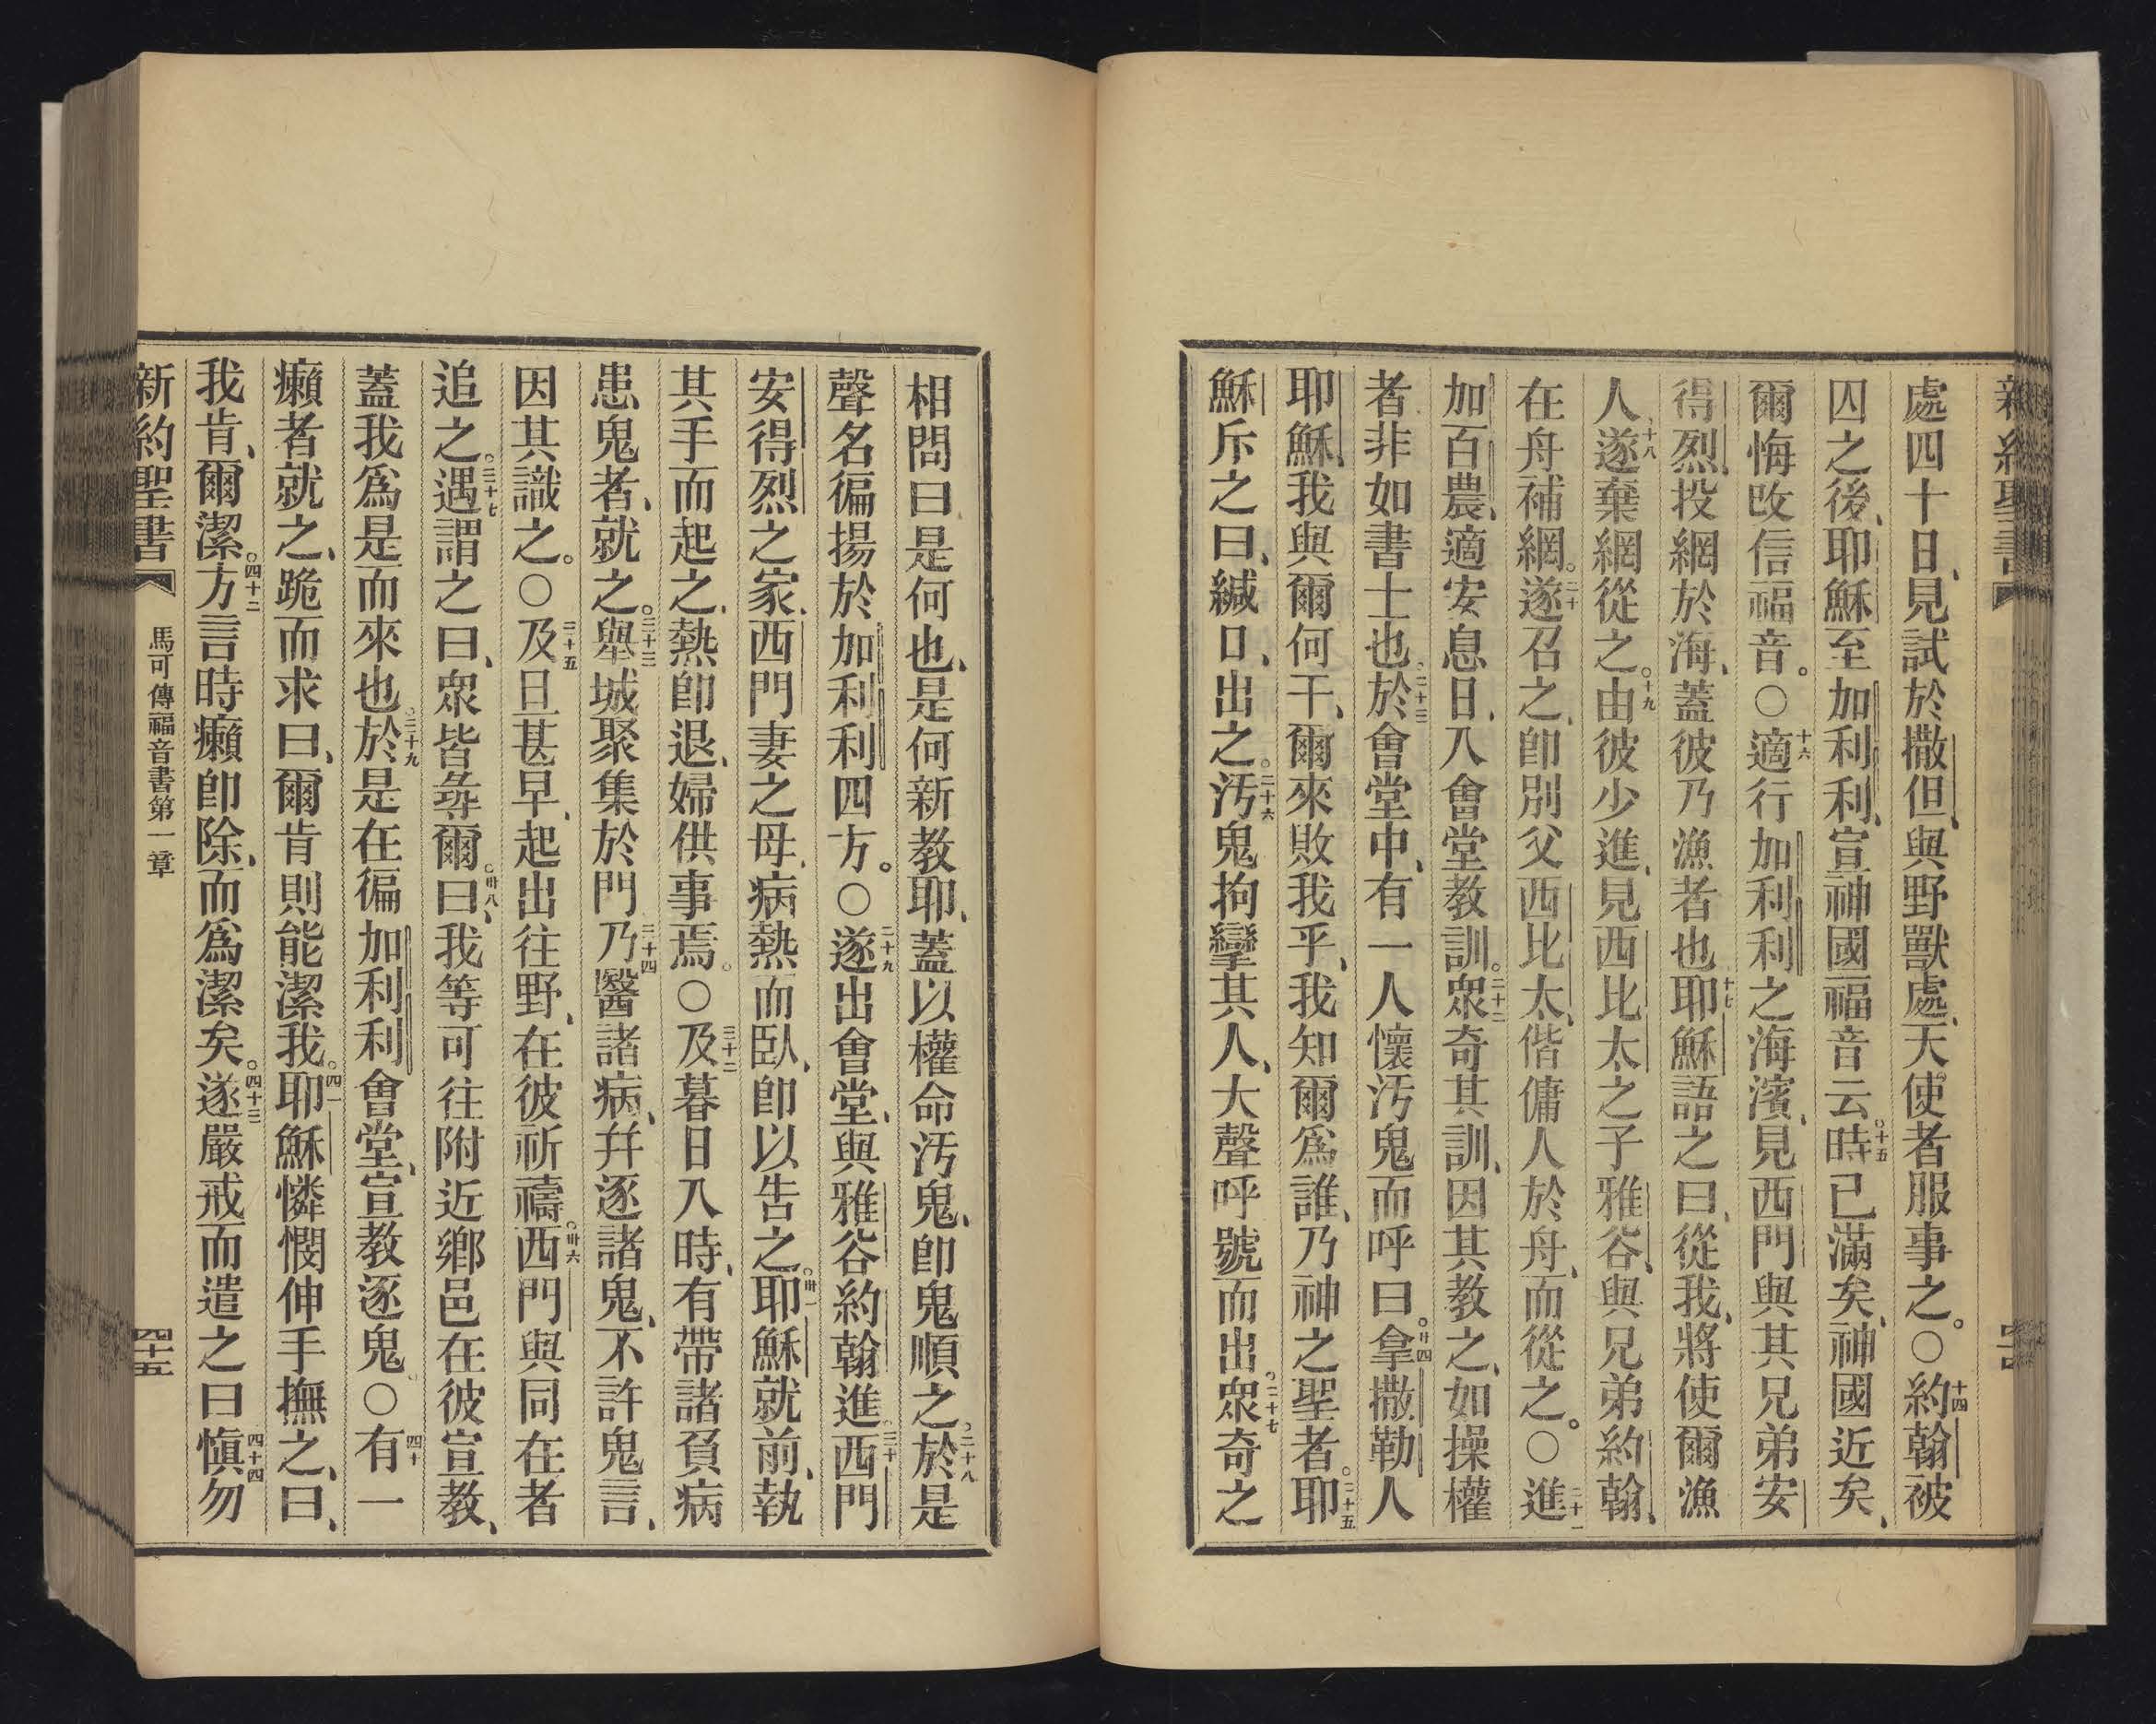 處四十日、見試於撒但、與野獸處、天使者服事之。○十四約翰被
囚之後、耶穌至加利利、宣神國福音云。十五時已滿矣、神國近矣、
爾悔改信福音。○十六適行加利利之海濱、見西門與其兄弟安
得烈、投網於海、蓋彼乃漁者也、十七耶穌語之曰、從我、將使爾漁
人、十八遂棄網從之。十九由彼少進、見西比太之子雅谷、與兄弟約翰、
在舟補網。二十遂召之、卽別父西比太、偕傭人於舟、而從之。○二十一進
加百農、適安息日、入會堂教訓。二十二眾奇其訓、因其教之、如操權
者、非如書士也。二十三於會堂中、有一人懷污鬼而呼曰。廿四拿撒勒人
耶穌、我與爾何干、爾來敗我乎、我知爾爲誰、乃神之聖者。二十五耶
穌斥之曰、緘口、出之。二十六污鬼拘攣其人、大聲呼號而出。二十七眾奇之
相問曰是何也、是何新教耶、蓋以權命污鬼、卽鬼順之。二十八於是
聲名徧揚於加利利四方。○二十九遂出會堂、與雅谷約翰進三十西門
安得烈之家、西門妻之母、病熱而臥、卽以告之。卅一耶穌就前、執
其手而起之、熱卽退、婦供事焉。○三十二及暮日入時、有帶諸負病
患鬼者、就之。三十三舉城聚集於門三十四乃醫諸病、幷逐諸鬼、不許鬼言、
因其識之。○三十五及旦甚早、起出往野、在彼祈禱。卅六西門與同在者
追之。三十七遇謂之曰、眾皆尋爾。卅八曰、我等可往附近鄉邑在彼宣教、
蓋我爲是而來也。三十九於是在徧加利利會堂、宣教逐鬼○四十有一
癩者就之、跪而求曰、爾肯則能潔我。四一耶穌憐憫伸手撫之、曰、
我肯、爾潔。四十二方言時癩卽除、而爲潔矣。四十三遂嚴戒而遣之曰四十四愼勿
新約聖書 馬可傳福音書第一章 四十五